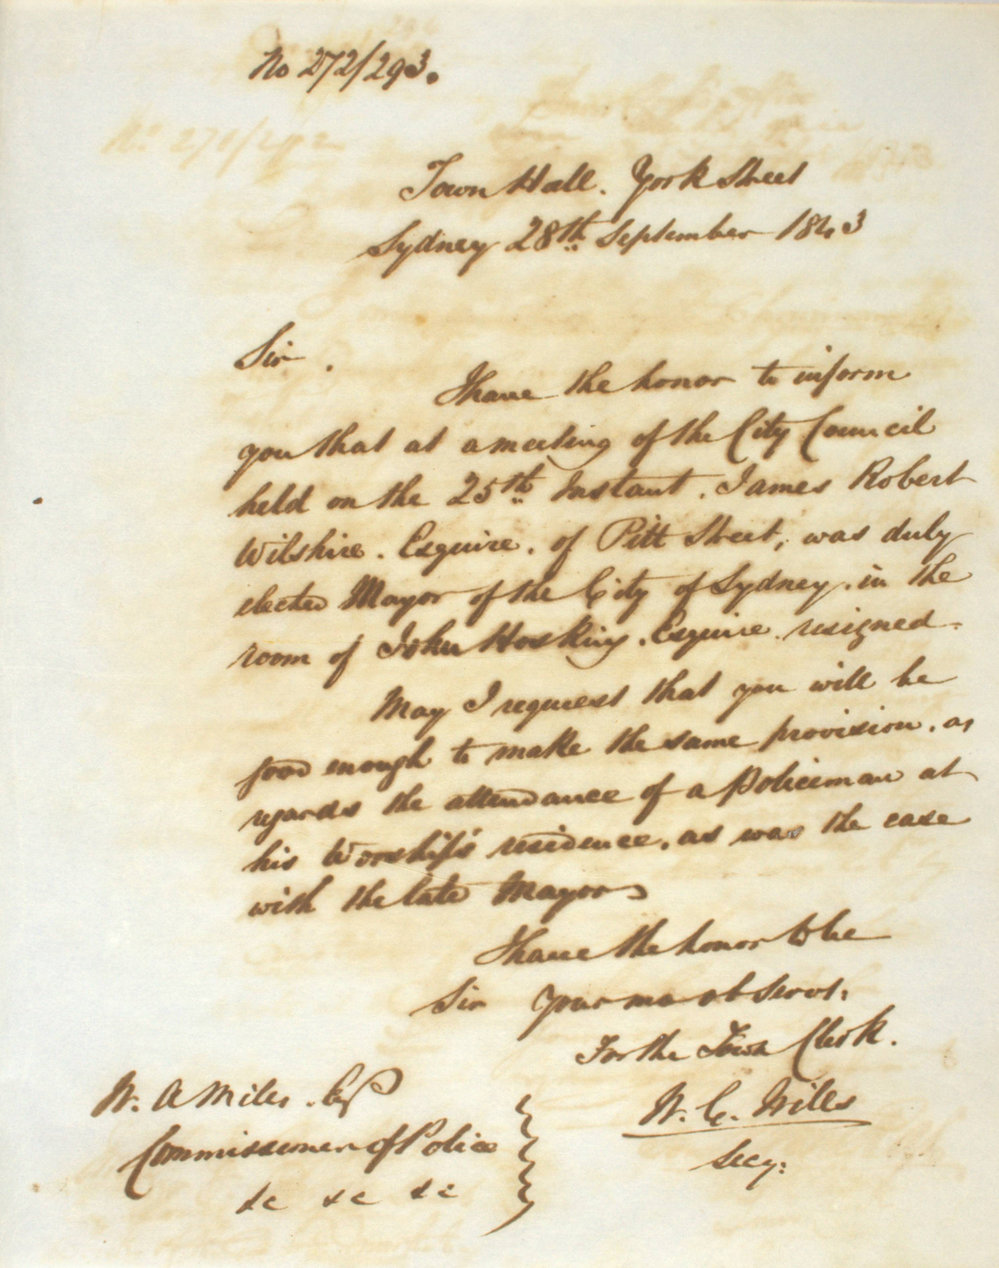 No 272/293.
Town Hall. York Street
Sydney 28th September 1843
Sir.
I have the honor to inform
you that at a meeting of the City Council
held on the 25th Instant. James Robert
Wilshire. Esquire. of Pitt Street, was duly
elected Mayor of the City of Sydney. in the
room of John Hosking. Esquire. resigned.
May I request that you will be
good enough to make the same provision. as
regards the attendance of a Policeman at
his Worship's residence. as was the case
with the late Mayor
I have the honor to be
Sir Your mo ob Servt.
For the Town Clerk.
W. C. Wills
Secy:
W. A Miles. Esq
Commissioner of Police
&c &c &c